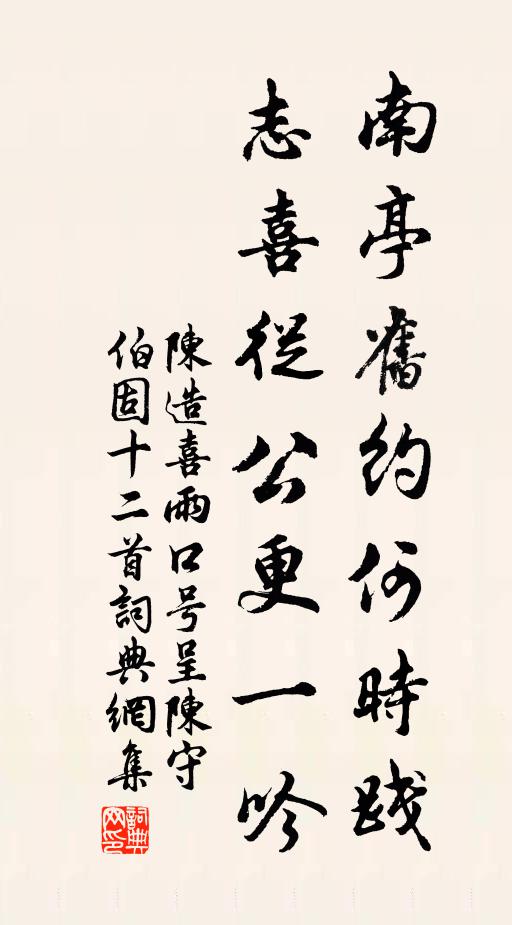 南亭舊約何時踐
志喜從公更一吟
陳造喜雨口号呈陳守
伯固十二首詞典網集
詞典網印